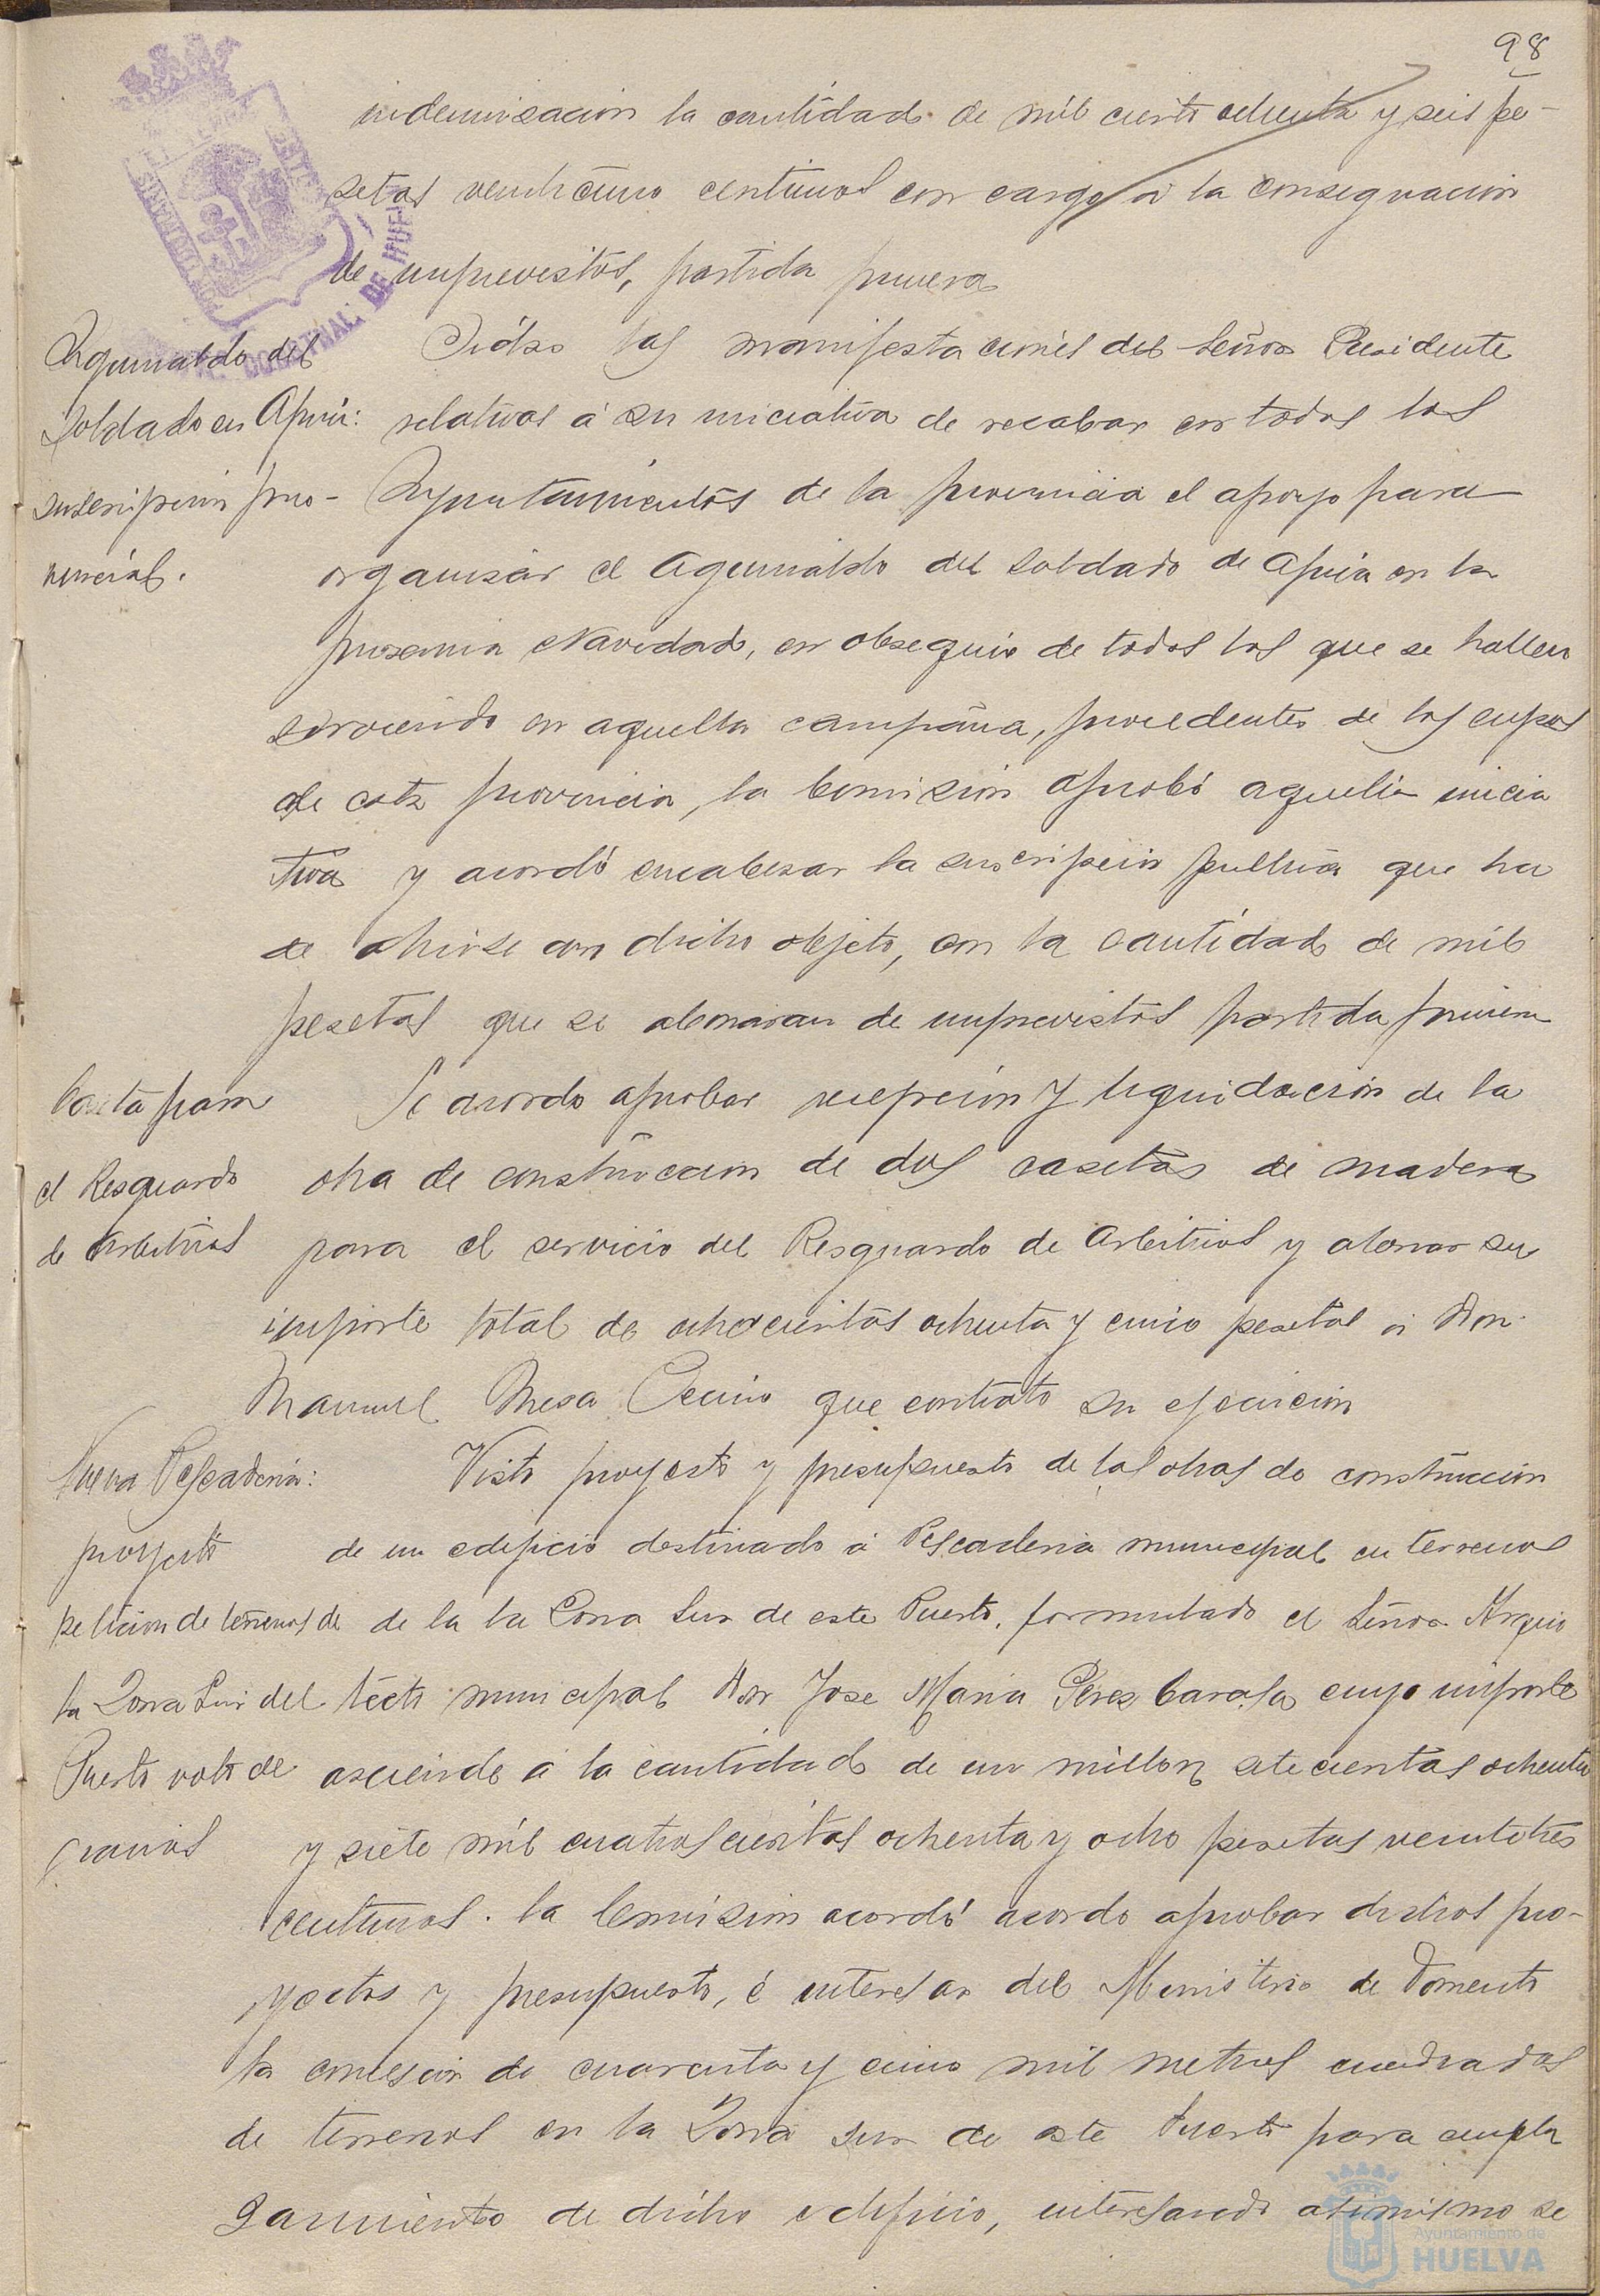 98
indemnisacion la cantidad de mil ciento ochenta y seis pe-
setas veinticinco centimos con cargo a la consignacion
de imprevistos, partida primera
Aguinaldo del
Soldado en Africa:
suscripcion pro-
vincial.
Oidas las manifestaciones del Señor Presidente
relativas á su iniciativa de recabar en todos los
Ayuntamientos de la provincia el apoyo para
organisar el Aguinaldo del Soldado de Africa en la
proxima Navidad, en obsequio de todos los que se hallen
sirviendo en aquella campaña, procedentes de los cupos
de esta provincia, la Comision aprobó aquella inicia
tiva y acordó encabesar la suscripcion publica que ha
de abrirse con dicho objeto, con la cantidad de mil
pesetas que se abonaran de imprevistos partida primera
Caseta para
el Resguardo
de Arbitrios
Se acordo aprobar recepcion y liquidacion de la
obra de construccion de dos casetas de madera
para el servicio del Resguardo de Arbitrios y abonar su
importe total de ochocientas ochenta y cinco pesetas a Don
Manuel Mesa que contrato su ejecucion
Nueva Pescaderia:
proyecto
peticion de terrenos de
la Zona Sur del
Puerto voto de
gracias
Visto proyecto y presupuesto de las obras de construccion
de un edificio destinado a Pescaderia municipal en terrenos
de la la Zona Sur de este Puerto, formulado el Señor Arqui
tecto municipal Don Jose Maria Peres Carasa cuyo importe
asciende a la cantidad de un millon setecientas ochenta
y siete mil cuatroscientas ochenta y ocho pesetas veintitres
centimos. la Comision acordó acordo aprobar dichos pro-
yectos y presupuesto, é interesar del Ministerio de Fomento
la concesion de cuarenta y cinco mil metros cuadrados
de terrenos en la Zona Sur de este Puerto para empla
zamiento de dicho edificio, interesando asimismo se
Ayuntamiento de
HUELVA